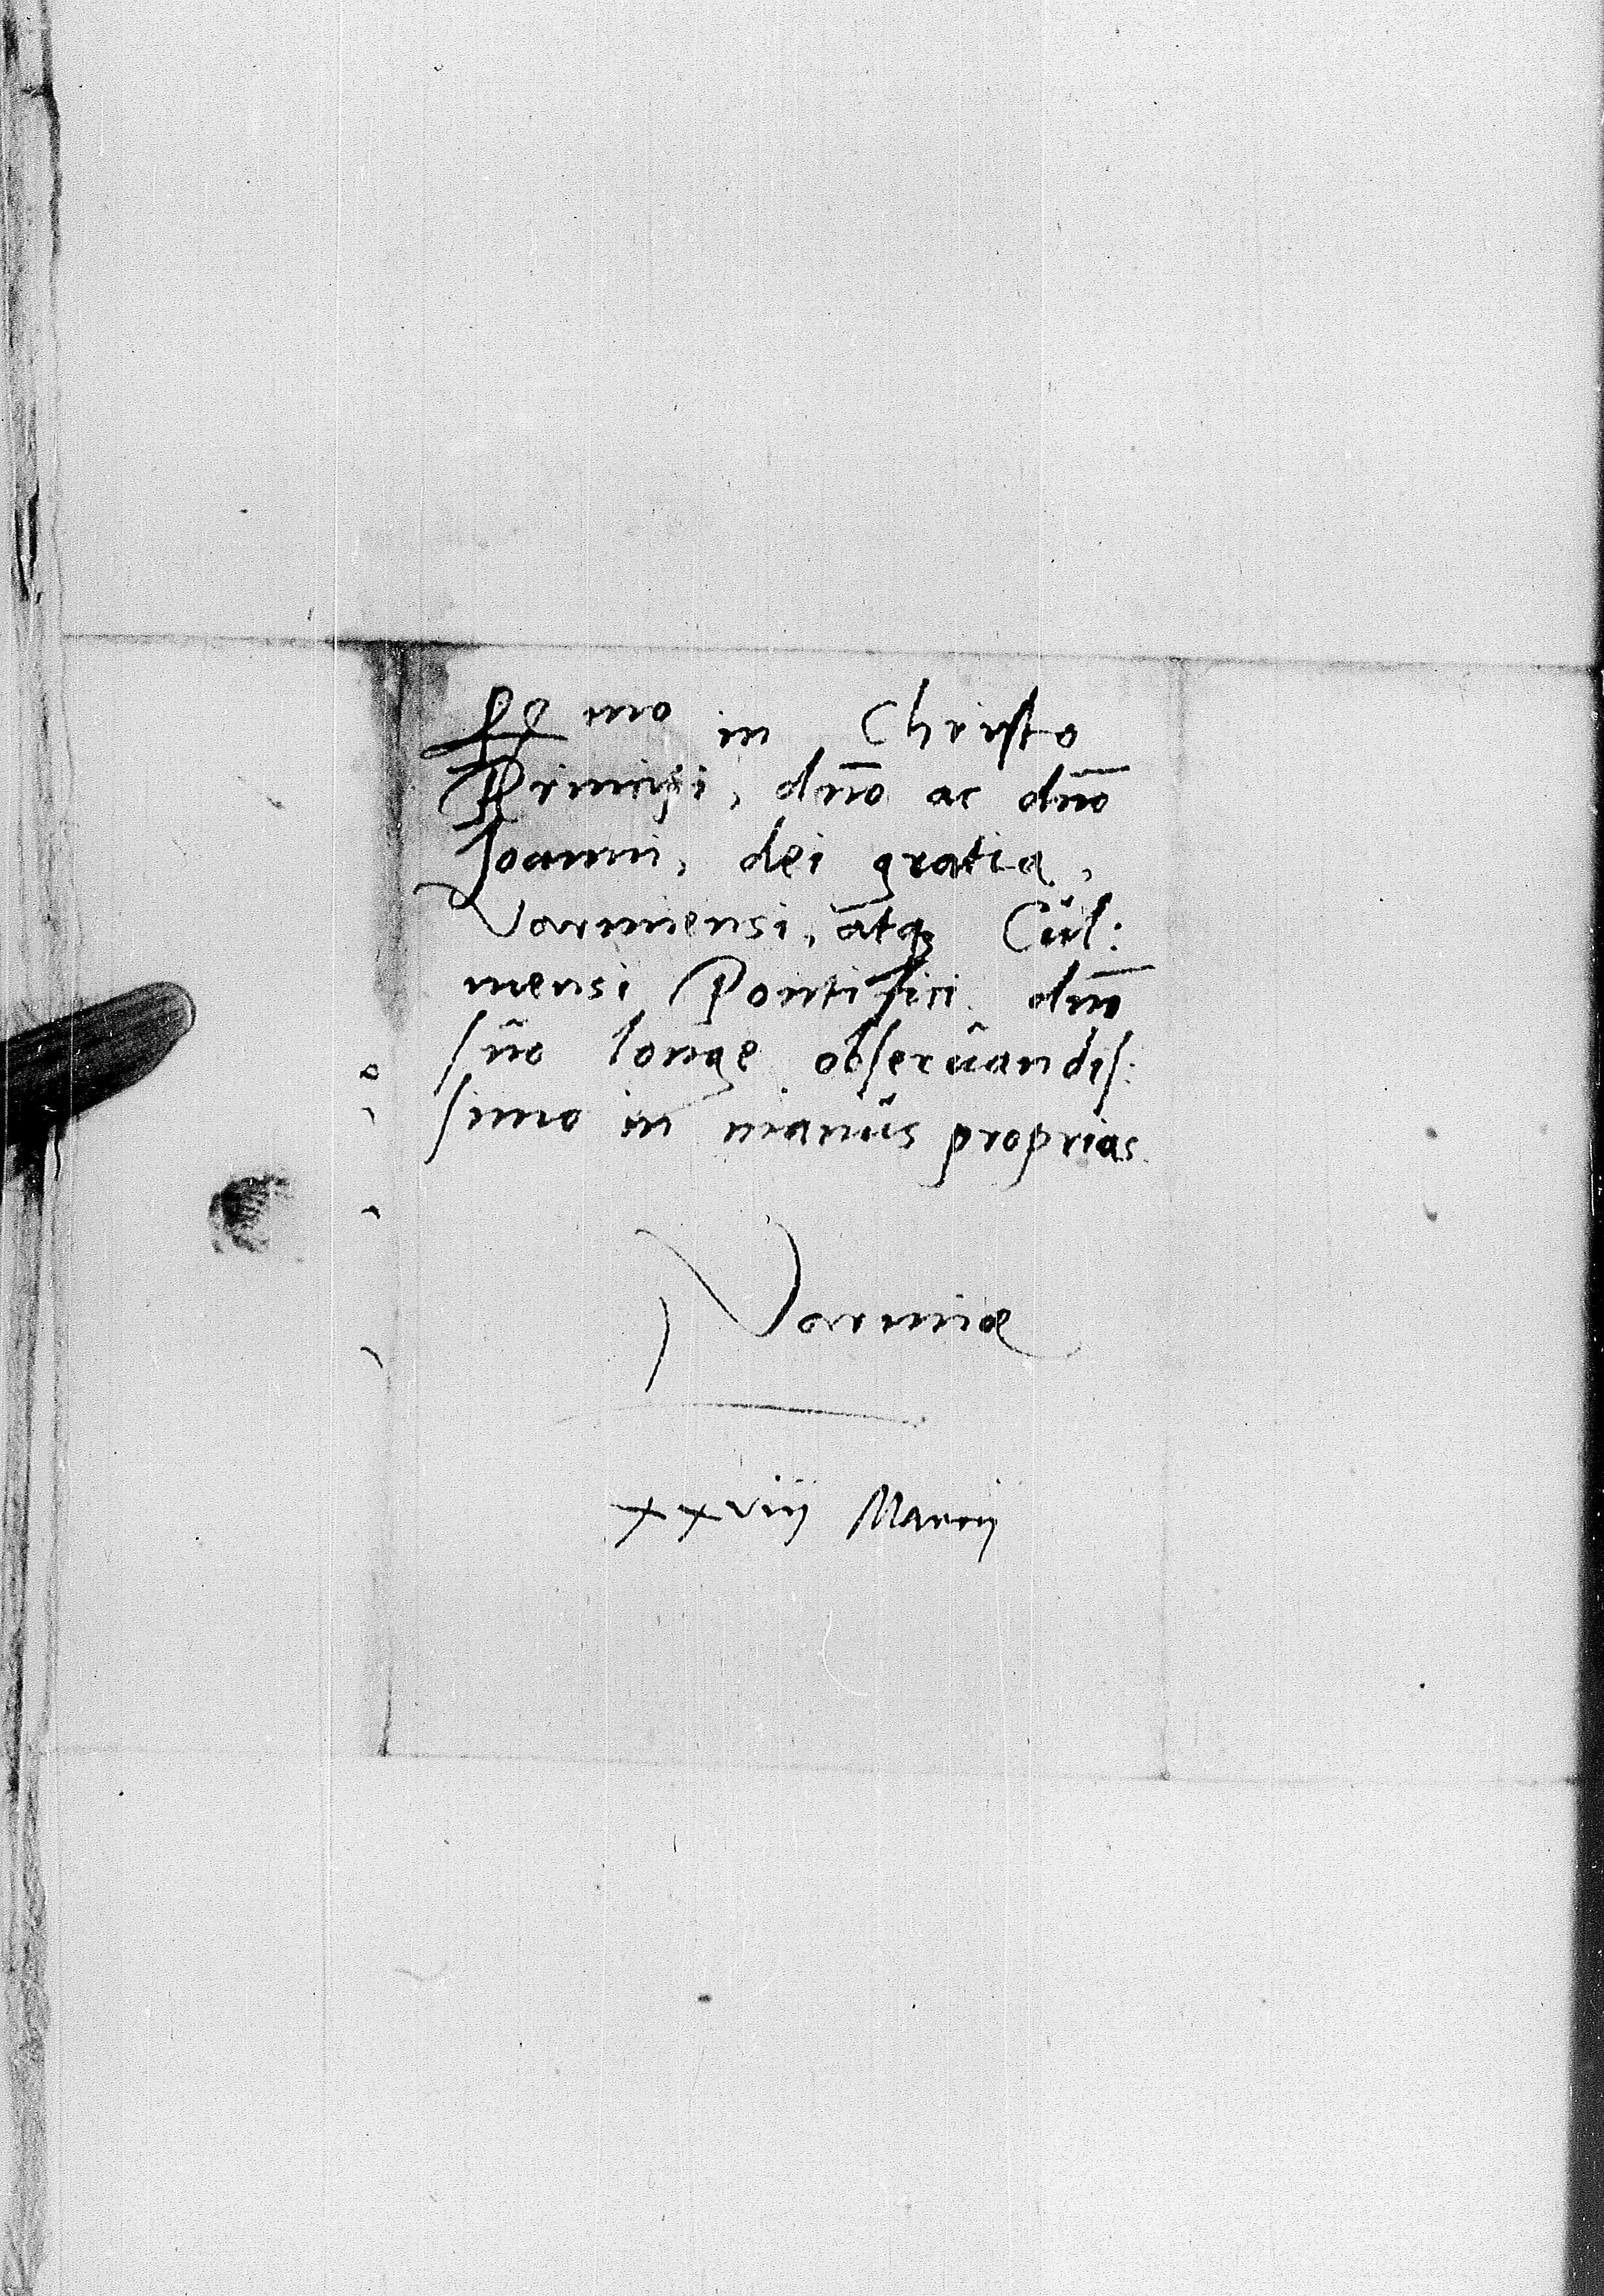 mo in Christo
Principi, dn̄o ac dn̄o
Joanni, dei gratia,
Varmiensi, atq; Cŭl:
mensi Pontifici dn̄o
sŭo longe obserŭandis:
simo in manŭs proprias.
Varmiæ
xxviij Marcij